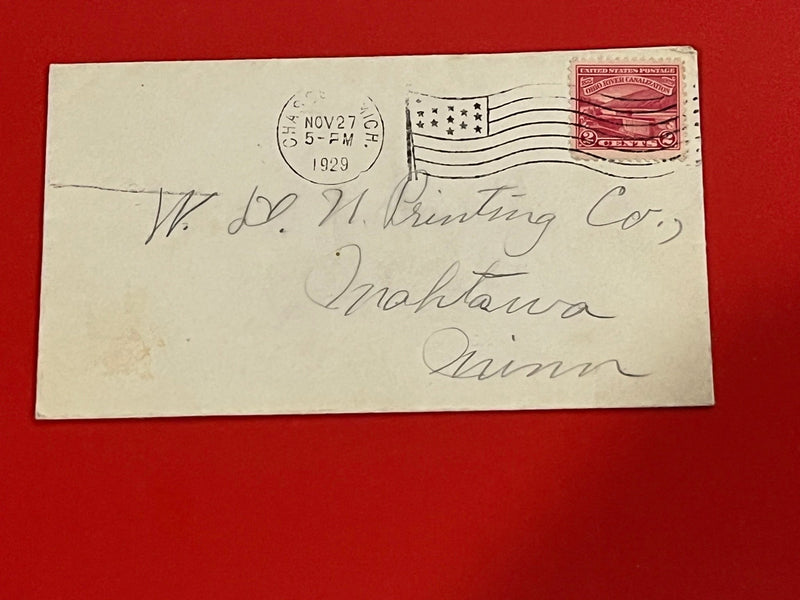 UNITED STATES POSTAGE
OHIO RIVER CANALIZATION
2 CENTS 2
MICH.
NOV 27
5-PM
1929
W. D. N. Printing Co.,
Mahtowa
Minn